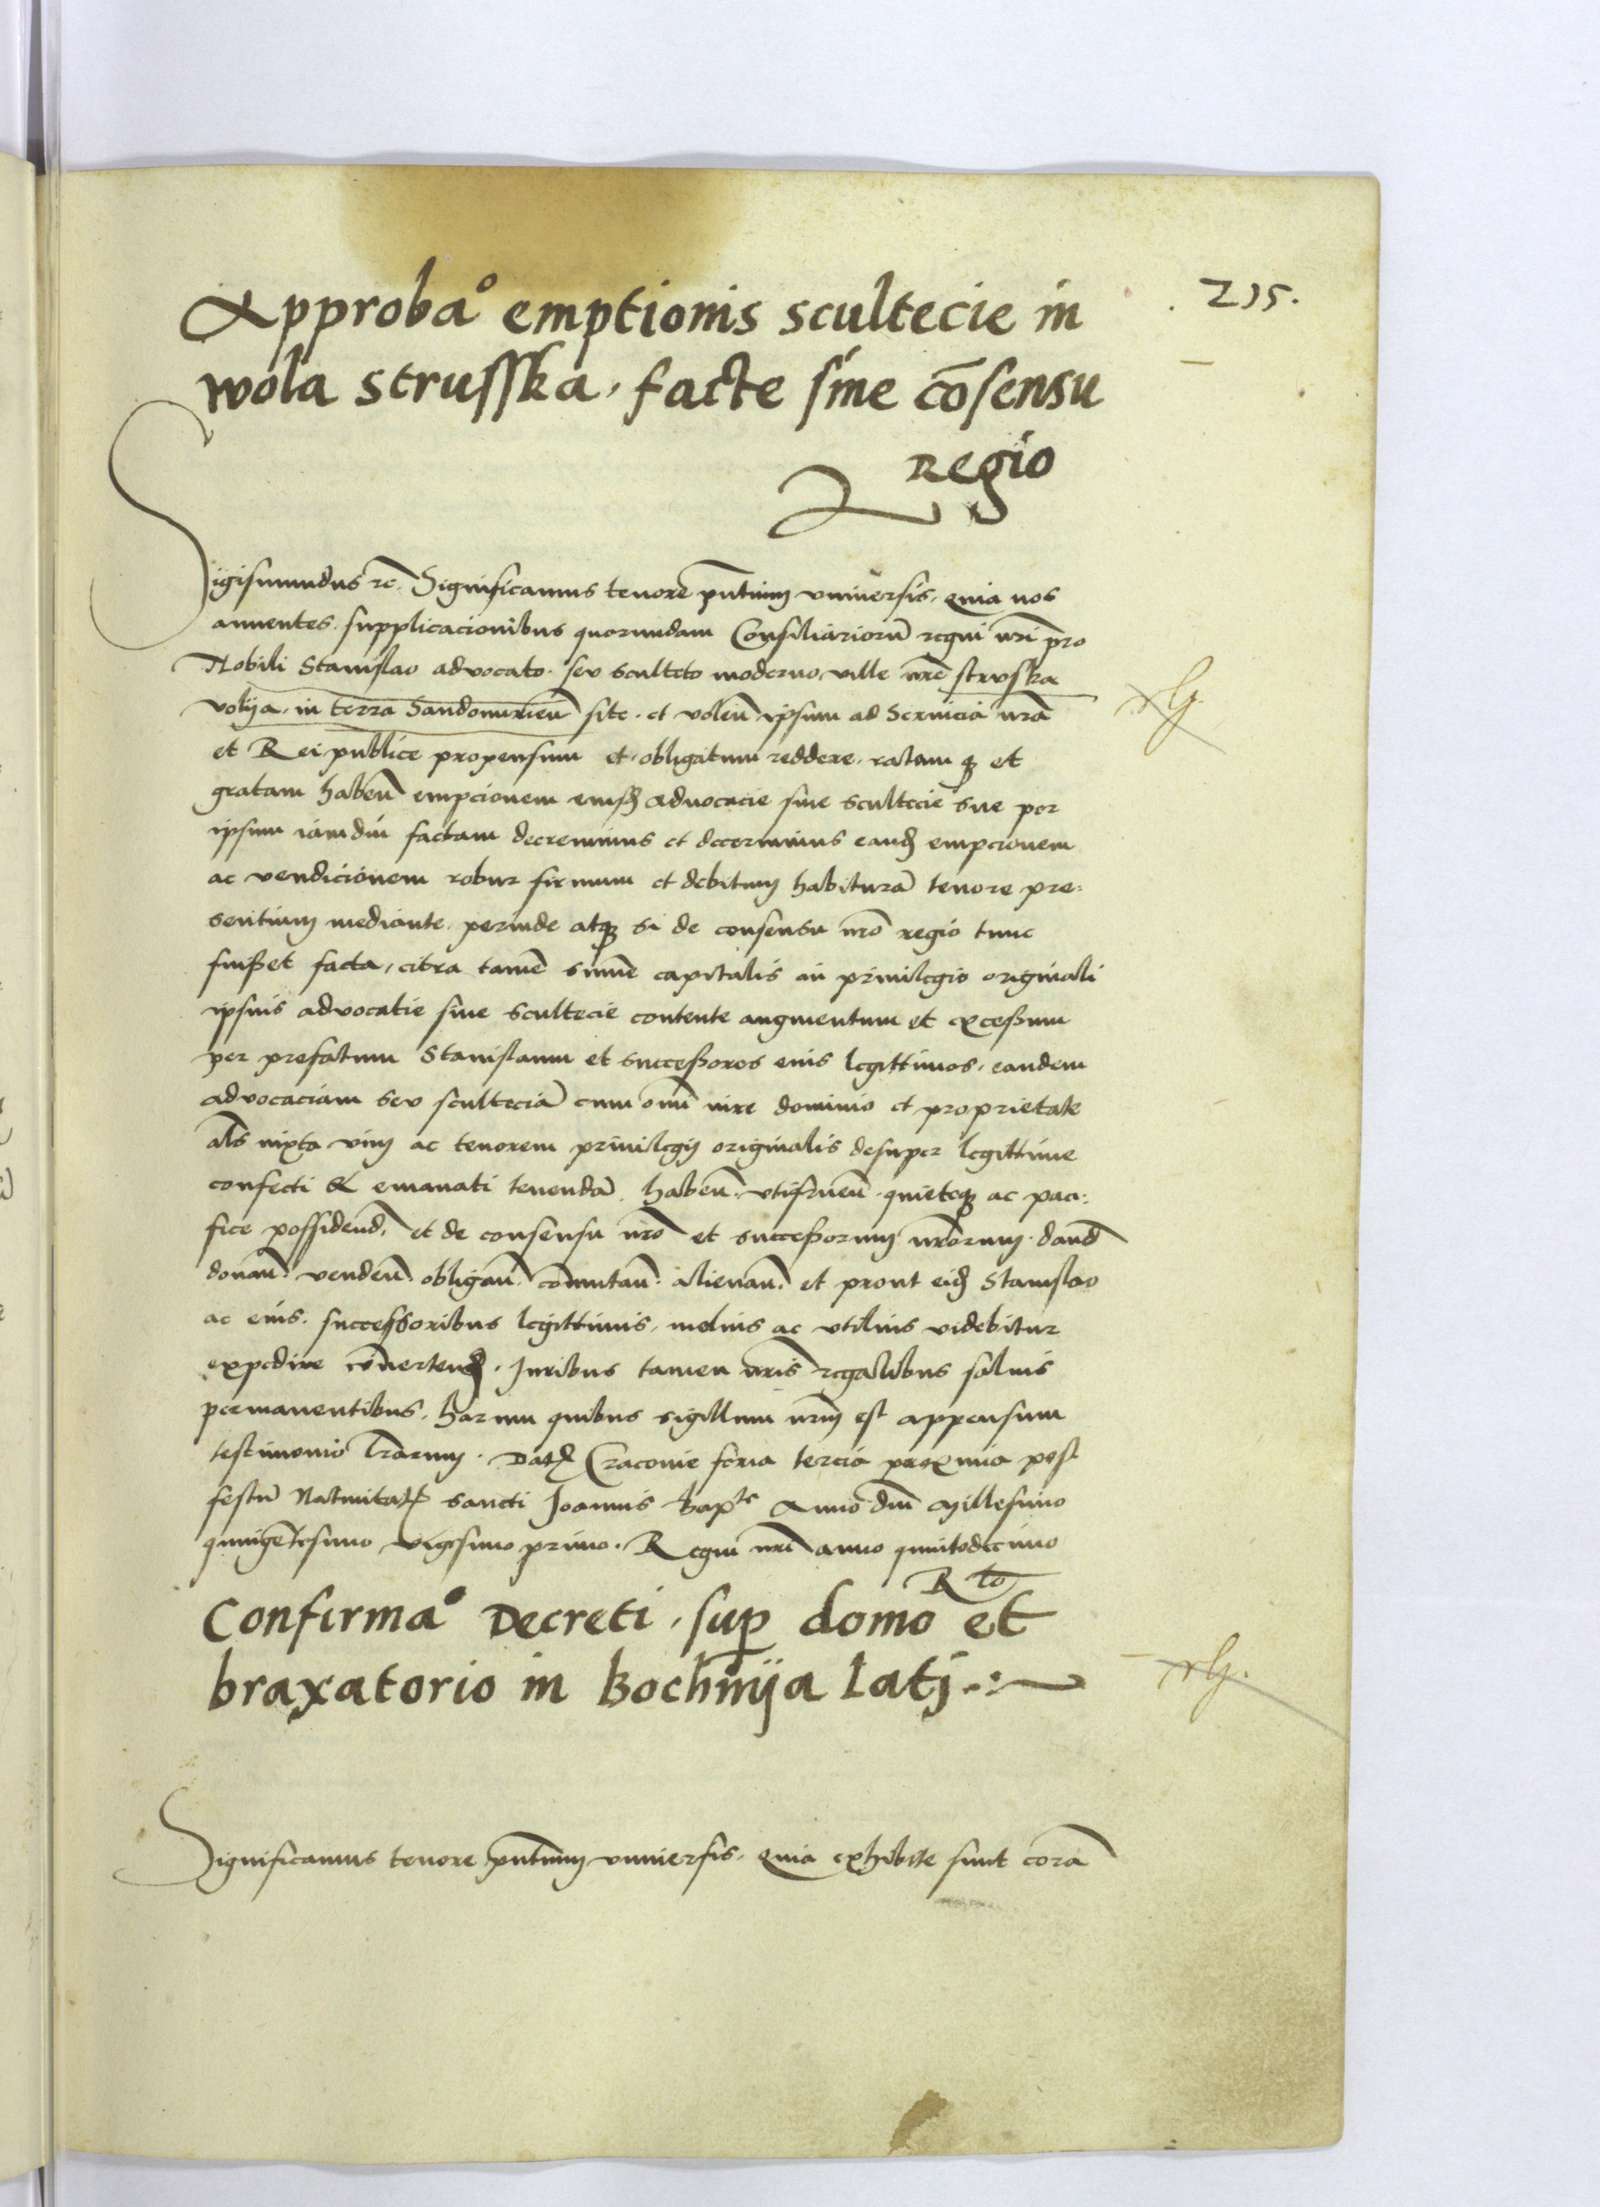 235.
Approba° emptionis scultecie in
wola strusska, facte sine cōsensu
Regio
Sigismundus rc. Significamus tenore pn̄tium vniversis, quia nos
annentes supplicacionibus quorundam Consiliariorū regni nr̄i pro
Nobili Stanislao advocato seu sculteto moderno, ville nr̄e strusska
volija, in terra Sandomirieñ site et voleñ ipsum ad Servicia nr̄a
et Rei publice propensum et obligatum reddere, ratam q3 et
gratam habeñ empcionem eiusd̄ advocacie siue scultecie sue per
ipsum iamdiu factam decrevimus et decernimus eand̄ empcionem
ac vendicionem robur firmum et debitum habiturā tenore pre:
sentium mediante perinde atq3 si de consensu nr̄o regio tunc
fuisset facta, citra tamē sum̄e capitalis in privilegio originali
ipsius advocatie siue scultecie contente augmentum et excessum
per prefatum Stanislaum et successores eius legittimos, eandem
advocaciam seu sculteciā cum om̄i iure dominio et proprietate
al̄s iuxta vim ac tenorem privilegij originalis desuper legittime
confecti & emanati tenendā habeñ, vtifrueñ quieteq3 ac paci:
fice possidend̄, et de consensu nr̄o et successorum nr̄orum dand̄
donañ vendeñ obligañ com̄utañ alienañ et prout eid̄ Stanislao
ac eius successoribus legittimis, melius ac vtilius videbitur
expedire cōvertend̄. Iuribus tamen nr̄is regalibus salvis
permanentibus, harum quibus sigillum nr̄um est appensum
testimonio lr̄arum. Dat̄ Cracovie feria tercia proxima post
festū Nativitat̄ sancti Joannis Bapte Anno dn̄i Millesimo
quingētesimo vigesimo primo. Regni nr̄i anno quintodecimo
R to
Confirma° Decreti, sup domo et
braxatorio in Bochnija Latj
Significamus tenore pn̄tium vniversis, quia exhibite sunt corā